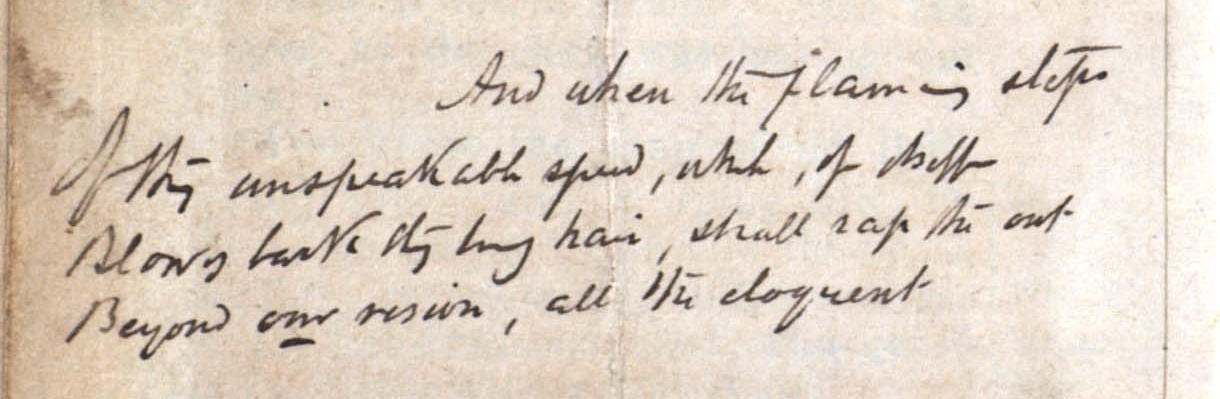 And when the flaming steps
Of thy unspeakable speed, which, of itself
Blows back thy long hair, shall rap thee out
Beyond our vision, all the eloquent